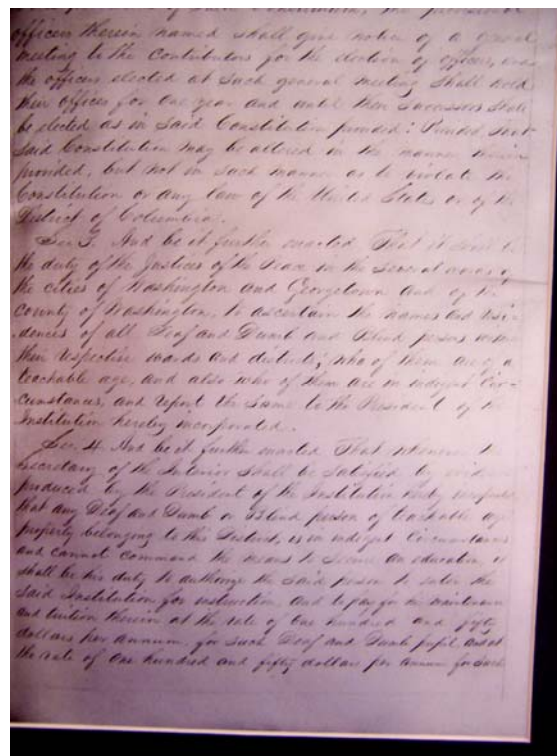 of such Constitution, the provisional
officers therein named shall give notice of a general
meeting to the Contributors for the election of officers, and
the officers elected at such general meeting shall hold
their offices for one year and until their successors shall
be elected as in said Constitution provided: Provided, that
said Constitution may be altered in the manner therein
provided, but not in such manner as to violate the
Constitution or any law of the United States or of the
District of Columbia.
Sec 3. And be it further enacted, That it shall be
the duty of the Justices of the Peace in the several wards of
the cities of Washington and Georgetown and of the
county of Washington, to ascertain the names and resi-
dences of all Deaf and Dumb and Blind persons within
their respective wards and districts; who of them are of a
teachable age, and also who of them are in indigent cir-
cumstances, and report the same to the President of the
Institution hereby incorporated.
Sec. 4. And be it further enacted That whenever the
Secretary of the Interior shall be satisfied by evidence
produced by the President of the Institution hereby incorporated
that any Deaf and Dumb or Blind person of teachable age
properly belonging to this District, is in indigent circumstances
and cannot command the means to secure an education, it
shall be his duty to authorize the said person to enter the
said Institution for instruction, and to pay for his maintenance
and tuition therein at the rate of one hundred and fifty
dollars per annum, for such Deaf and Dumb pupil and at
the rate of one hundred and fifty dollars per annum for such